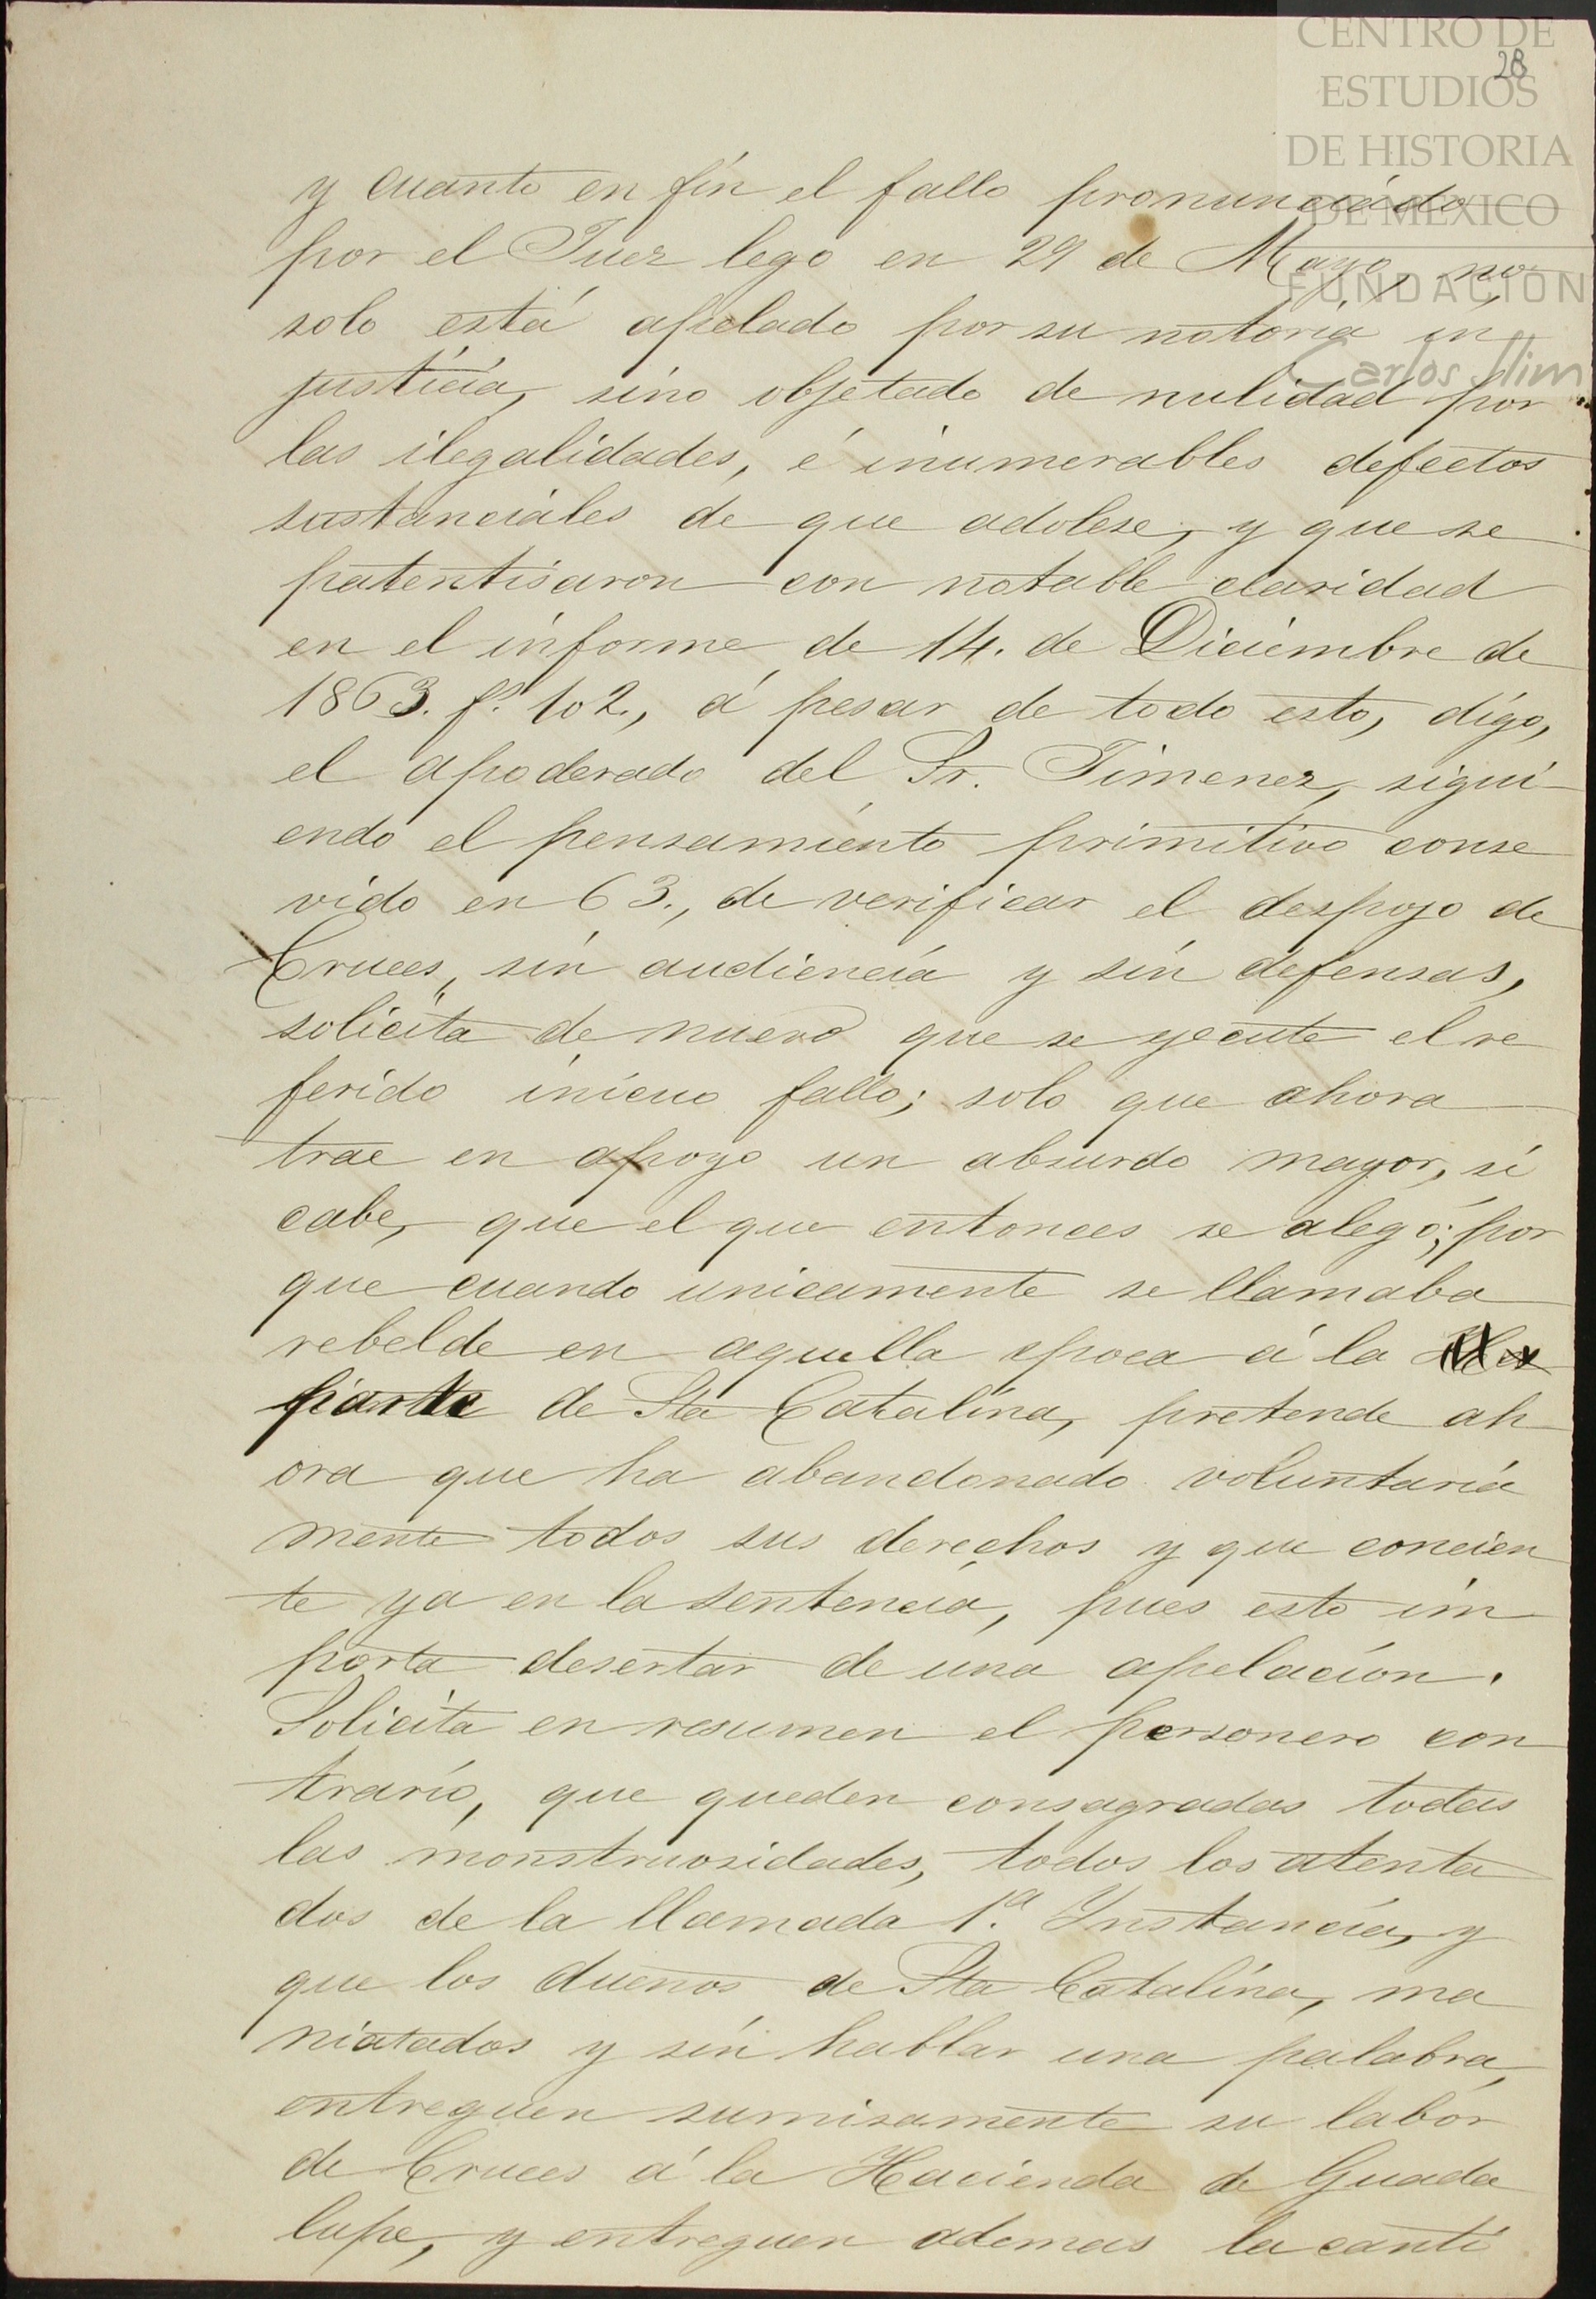 CENTRO DE
ESTUDIOS
DE HISTORIA
DE MÉXICO
FUNDACIÓN
Carlos Slim
28
y cuanto en fin el fallo pronunciado
por el Juez lego en 29 de Mayo, no
solo está apelado por su notoria in
justicia, sino objetado de nulidad por
las ilegalidades, é inumerables defectos
sustanciales de que adolese, y que se
patentisaron con notable claridad
en el informe de 14. de Diciembre de
1863. fs. 102., á pesar de todo esto, digo,
el apoderado del Sr. Jimenez, sigui-
endo el pensamiento primitivo conse
vido en 63., de verificar el despojo de
Cruces, sin audiencia y sin defensas,
solicita de nuevo que se yecute el re
ferido inicuo fallo; solo que ahora
trae en apoyo un absurdo mayor, si
cabe, que el que entonces se alegó; por
que cuando unicamente se llamaba
rebelde en aquella epoca á la
parte de Sta Catalina, pretende ah
ora que ha abandonado voluntaria
mente todos sus derechos y que concien
te ya en la sentencia, pues esto im
porta desertar de una apelacion.
Solicita en resumen el personero con
trario, que queden consagradas todas
las monstruosidades, todos los atenta
dos de la llamada 1.ª Ynstancia, y
que los duenos de Sta Catalina, ma
niatados y sin hablar una palabra,
entreguen sumisamente su labor
de Cruces á la Hacienda de Guada
lupe, y entreguen ademas la canti